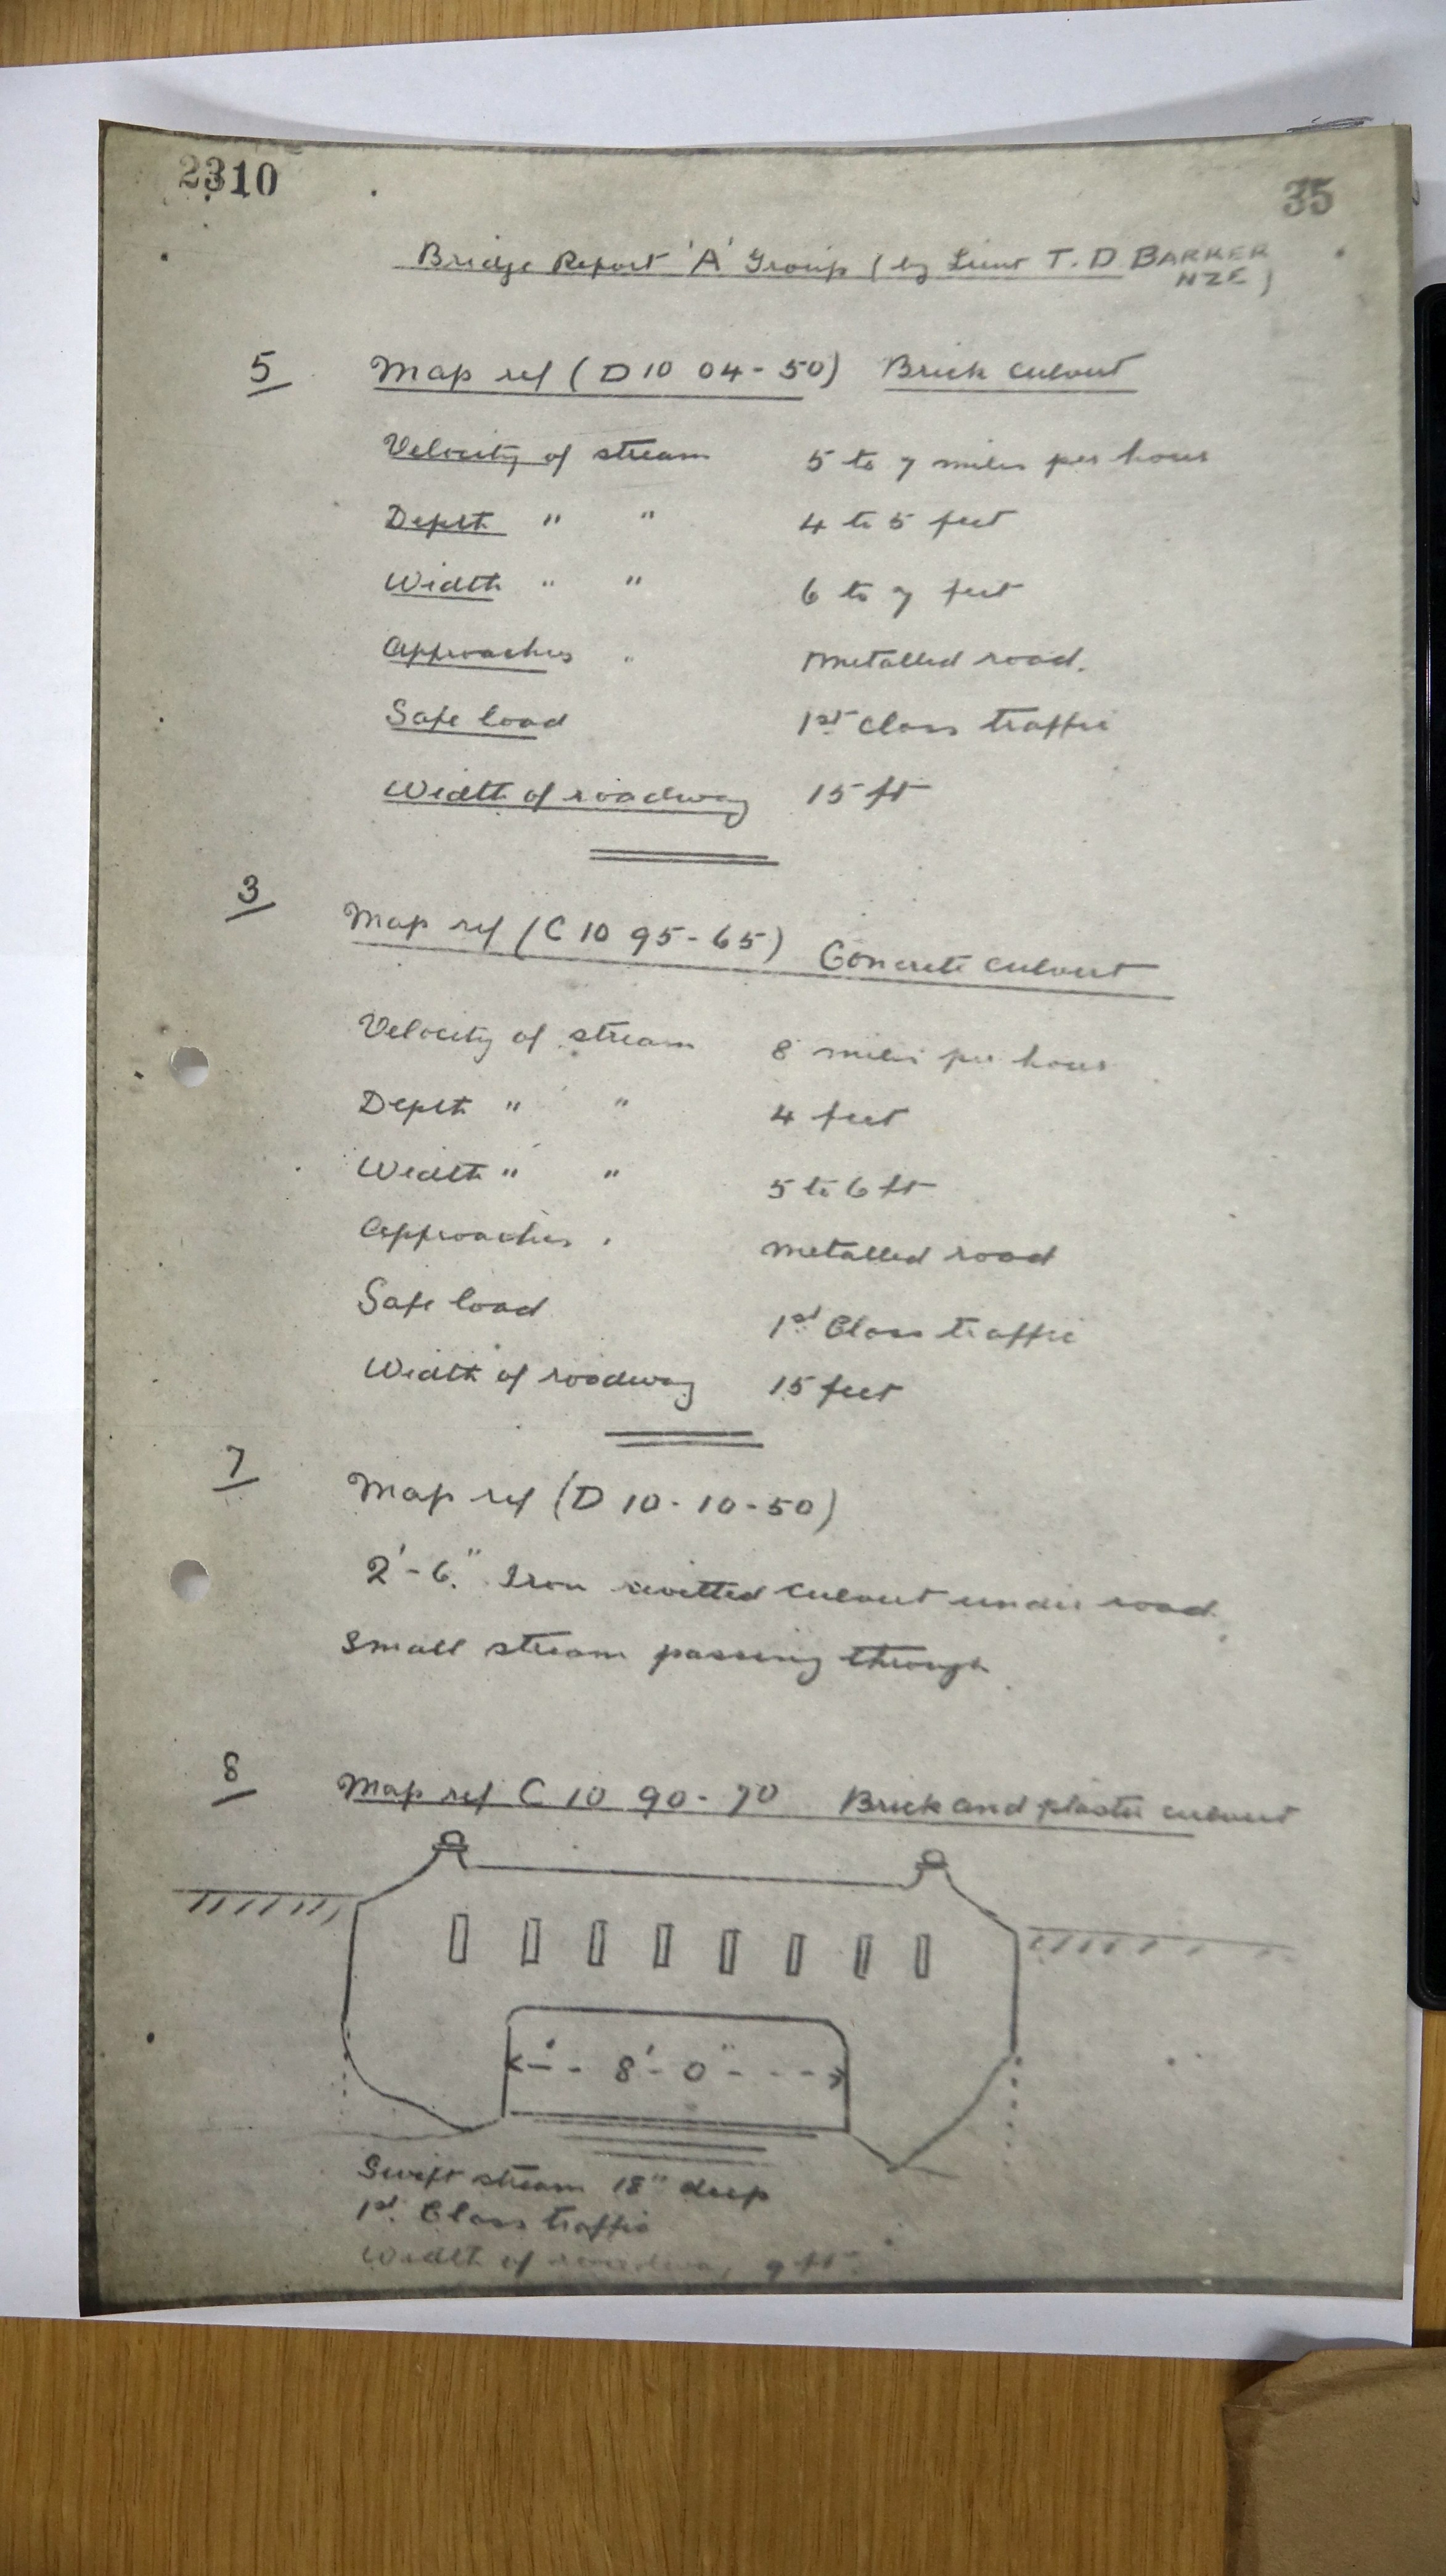 2310
35
Bridge Report 'A' Group (by Lieut T. D BARKER
NZE)
5 Map ref (D 10 04-50) Brick culvert
Velocity of stream 5 to 7 miles per hour
Depth " " 4 to 5 feet
Width " " 6 to 7 feet
Approaches " Metalled road.
Safe load 1st Class traffic
Width of roadway 15 ft
3 Map ref (C 10 95-65) Concrete culvert
Velocity of stream 8 miles per hour
Depth " " 4 feet
Width " " 5 to 6 ft
Approaches . metalled road
Safe load 1st Class traffic
Width of roadway 15 feet
7 Map ref (D 10-10-50)
2'-6" Iron rivetted culvert under road.
Small stream passing through
8 Map ref C 10 90-70 Brick and plaster culvert
8'-0"
Swift stream 18" deep
1st Class traffic
Width of roadway 9 ft.